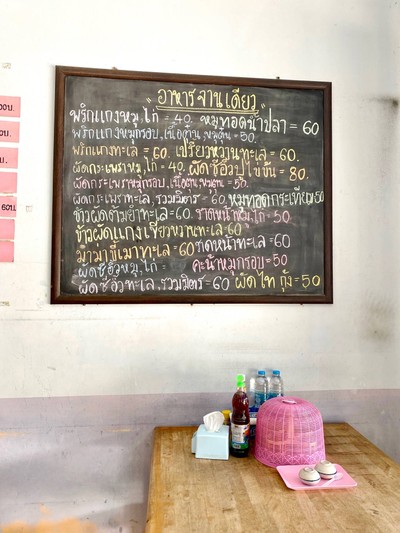 "อาหารจานเดียว"
พริกแกงหมู,ไก่ = 40. หมูทอดน้ำปลา = 60
พริกแกงหมูกรอบ,เนื้อตุ๋น,หมูตุ๋น = 50.
พริกแกงทะเล = 60. เปรี้ยวหวานทะเล = 60.
ผัดกระเพราหมู,ไก่ = 40. ผัดซีอิ๊วปูไข่ขึ้น = 80.
ผัดกระเพราหมูกรอบ,เนื้อตุ๋น,หมูตุ๋น = 50.
ผัดกระเพราทะเล,รวมมิตร = 60, หมูทอดกระเทียม=50
ข้าวผัดต้มยำทะเล=60. ราดหน้าหมู,ไก่ = 50.
ข้าวผัดแกงเขียวหวานทะเล 60
มาม่าขี้เมาทะเล =60 ราดหน้าทะเล =60
ผัดซีอิ๊วหมู,ไก่ = คะน้าหมูกรอบ=50
ผัดซีอิ๊วทะเล,รวมมิตร=60 ผัดไท กุ้ง=50
60บ.